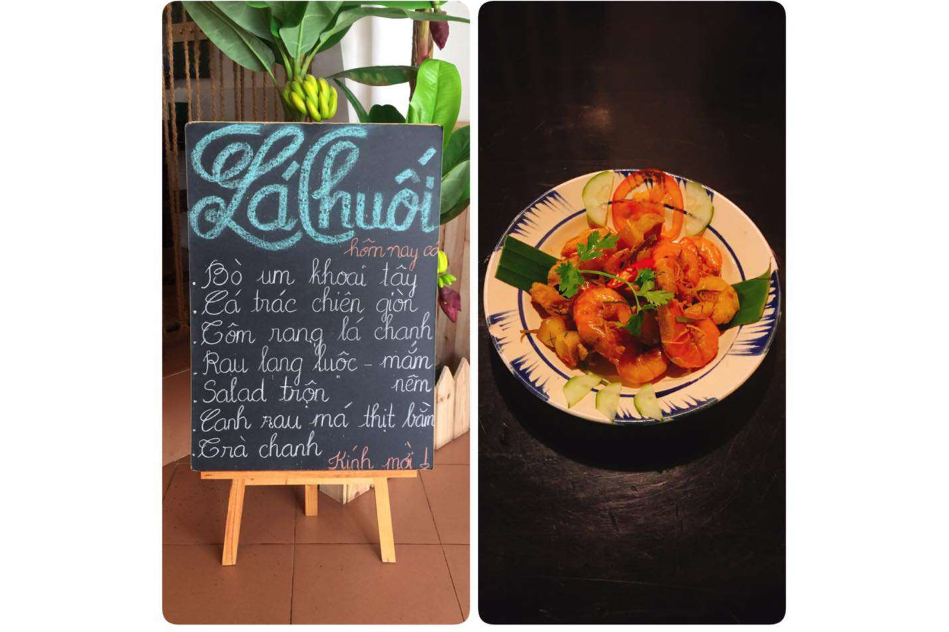 Lá Chuối
hôm nay có
. Bò um khoai tây
. Cá trác chiên giòn
. Tôm rang lá chanh
. Rau lang luộc - mắm
nêm
. Salad trộn
. Canh rau má thịt bằm
. Trà chanh
Kính mời !